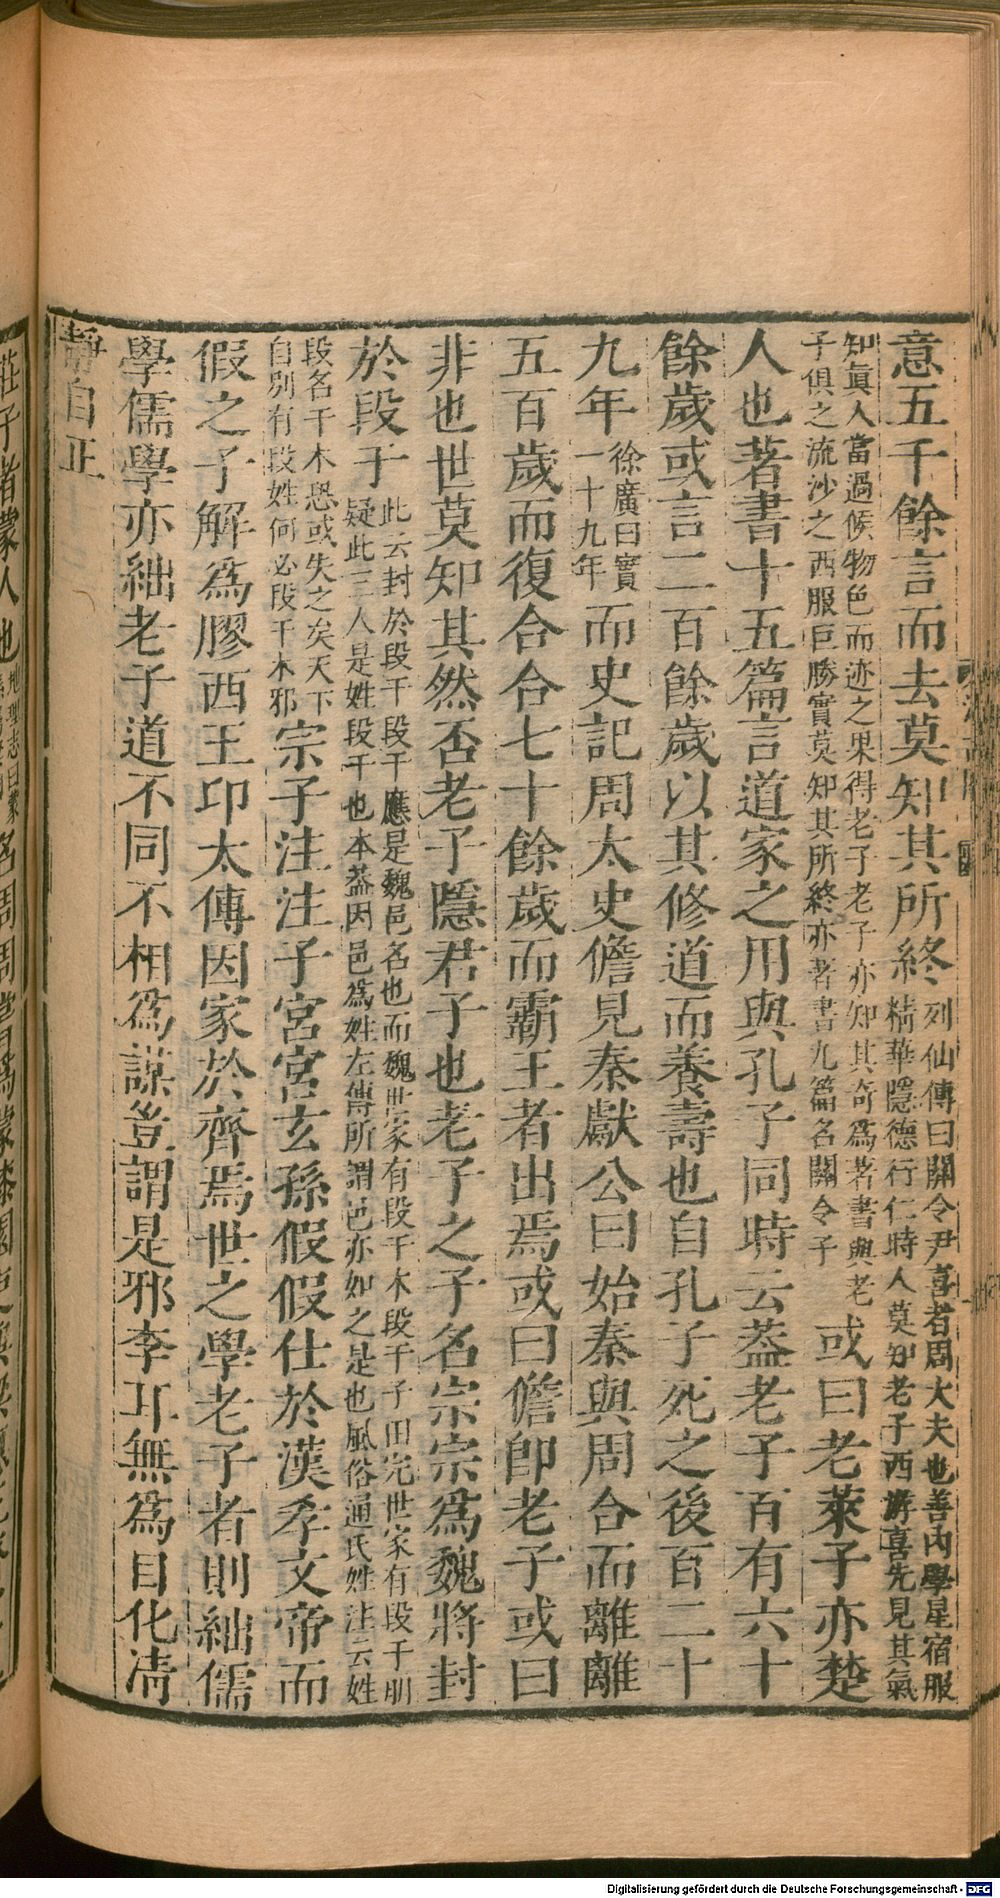 意五千餘言而去莫知其所終列仙傳曰關令尹喜者周大夫也善內學星宿服精華隱德行仁時人莫知老子西游喜先見其氣
知眞人當過候物色而迹之果得老子老子亦知其奇爲著書與老子俱之流沙之西服巨勝實莫知其所終亦著書九篇名關令子或曰老萊子亦楚
人也著書十五篇言道家之用與孔子同時云蓋老子百有六十
餘歲或言二百餘歲以其修道而養壽也自孔子死之後百二十
九年徐廣曰實一十九年而史記周太史儋見秦獻公曰始秦與周合而離離
五百歲而復合合七十餘歲而霸王者出焉或曰儋卽老子或曰
非也世莫知其然否老子隱君子也老子之子名宗宗爲魏將封
於段干此云封於段干段干應是魏邑名也而魏世家有段干木段干子田完世家有段干朋疑此三人是姓段干也本蓋因邑爲姓左傳所謂邑亦如之是也風俗通氏姓注云姓
段名干木恐或失之矣天下自別有段姓何必段干木邪宗子注注子宮宮玄孫假假仕於漢孝文帝而
假之子解爲膠西王卬太傅因家於齊焉世之學老子者則絀儒
學儒學亦絀老子道不同不相爲謀豈謂是邪李耳無爲自化清
靜自正
莊子者蒙人也
Digitalisierung gefördert durch die Deutsche Forschungsgemeinschaft - DFG